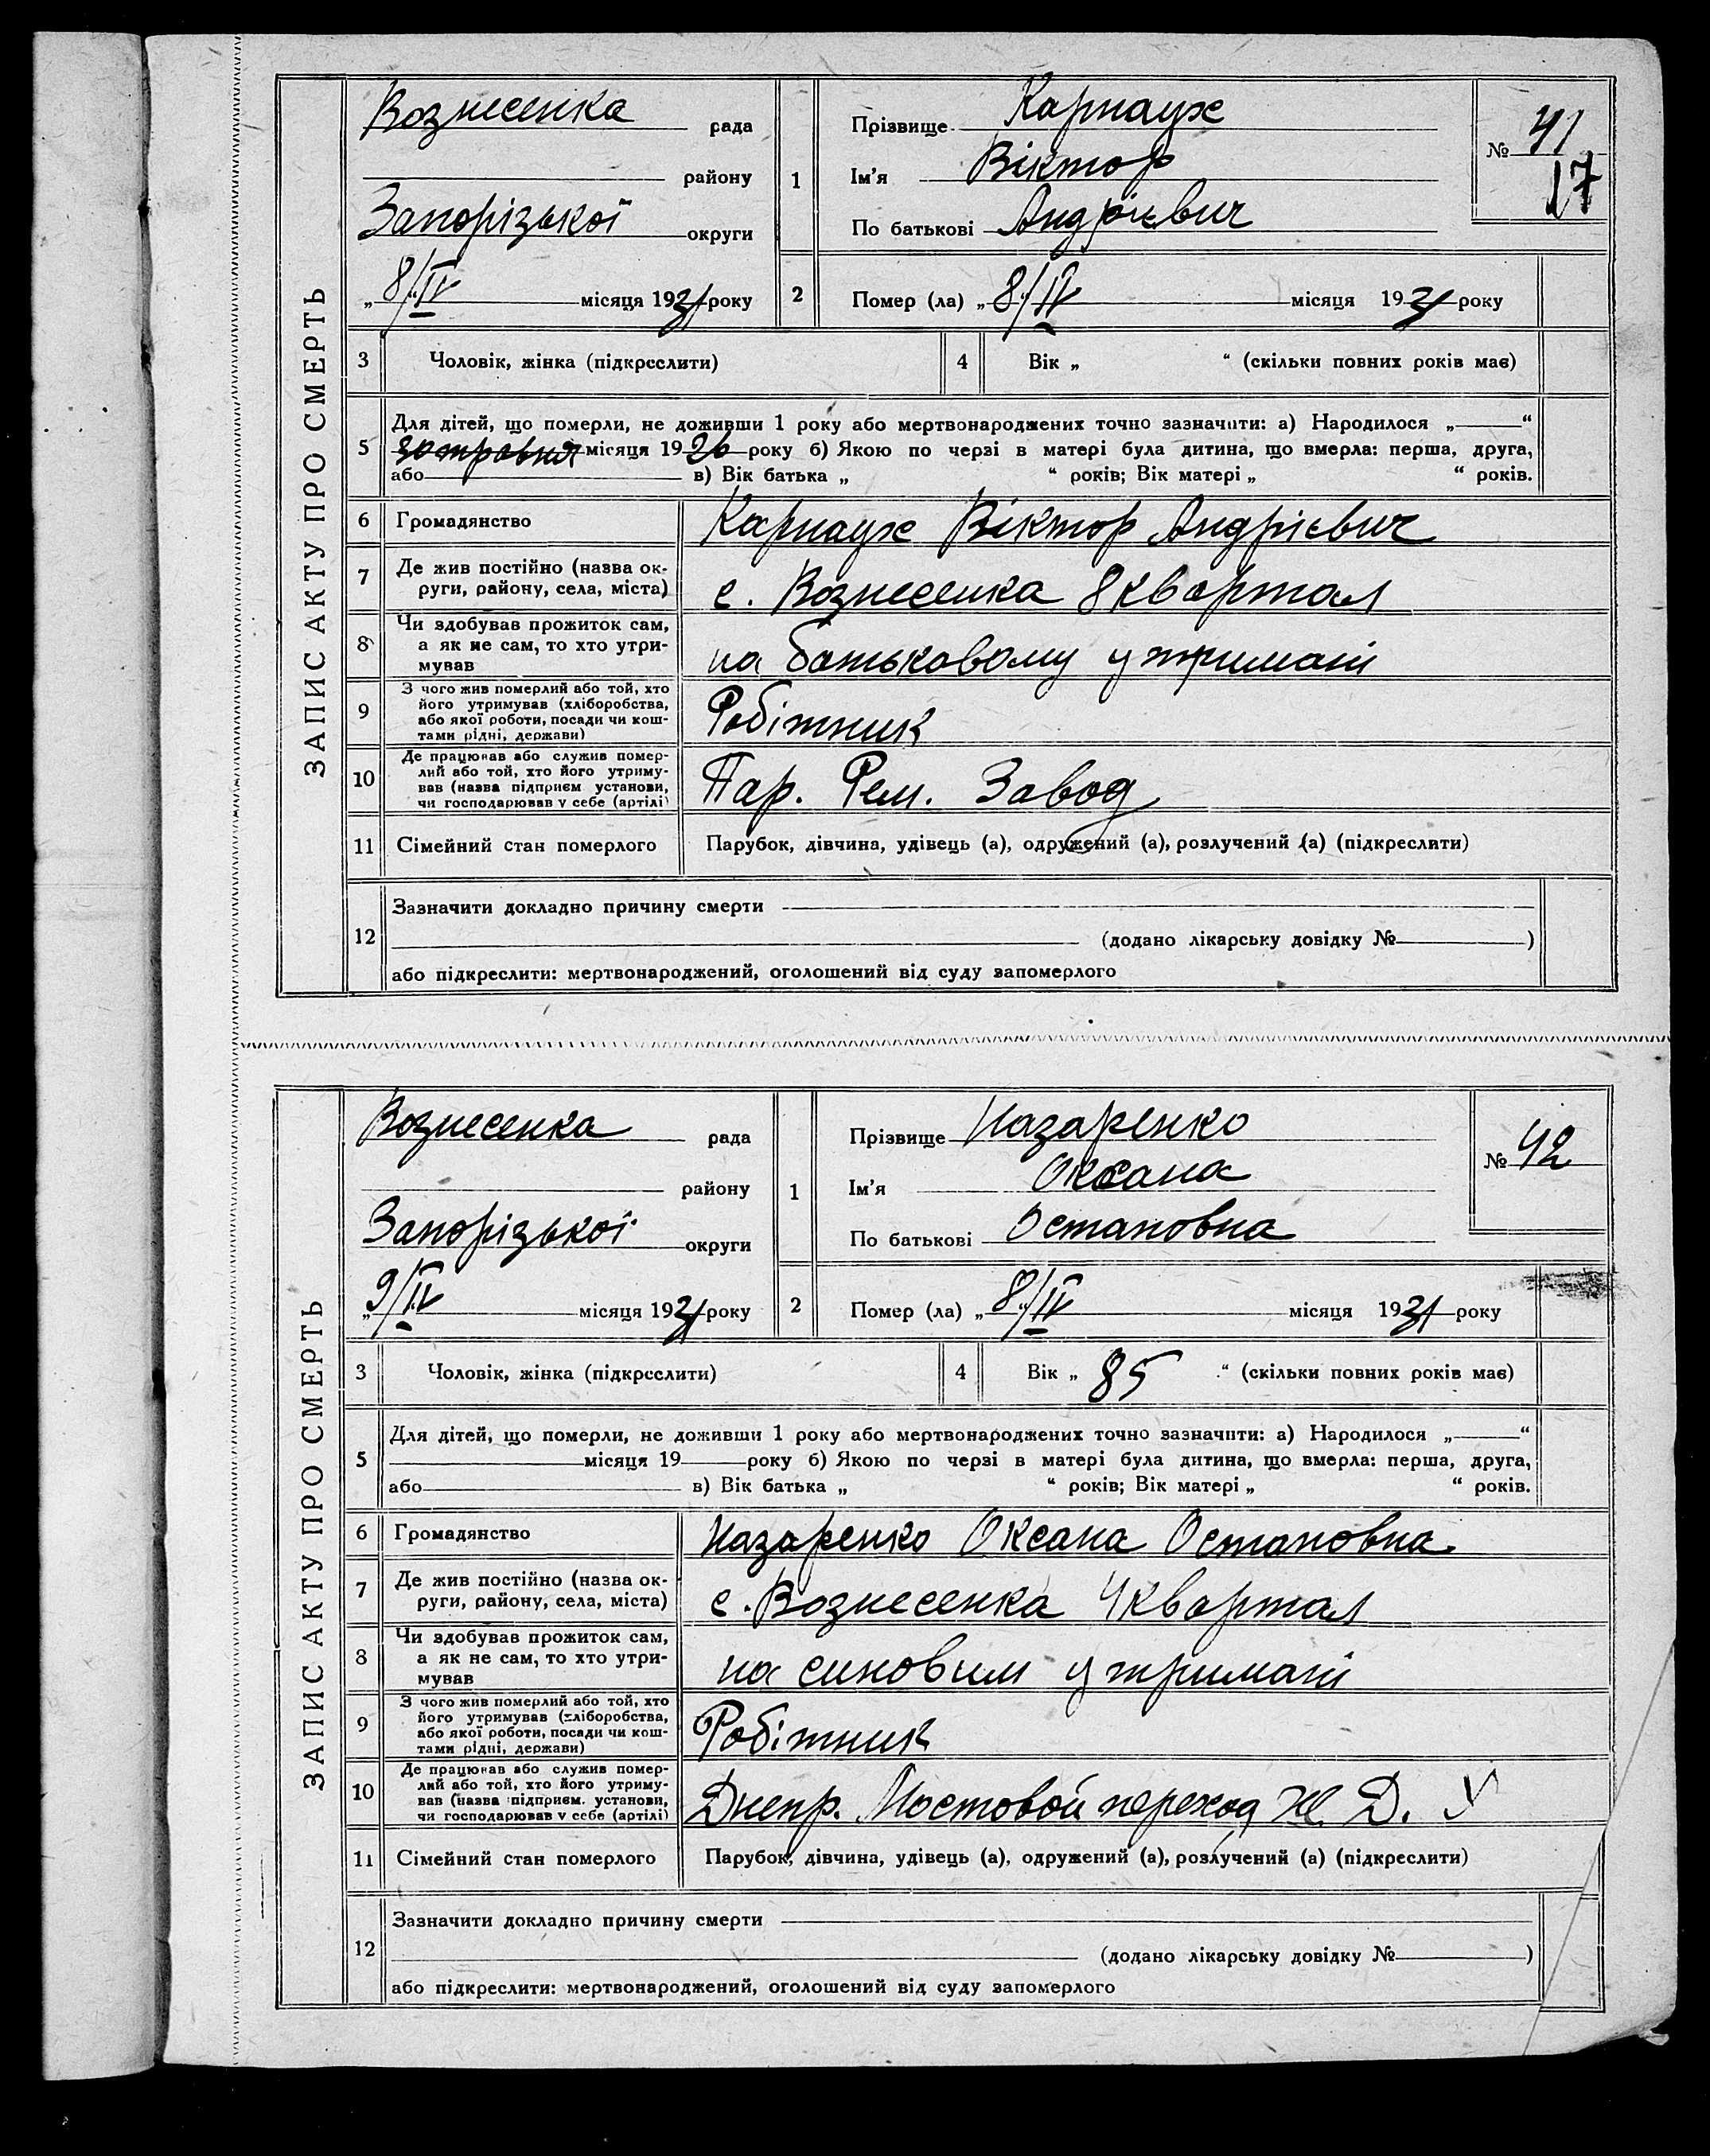 ЗАПИС АКТУ ПРО СМЕРТЬ
Вознесенка рада
району
Запорізької округи
„ 8/IV місяця 1931 року
1 Прізвище Карнаух
Ім'я Віктор
По батькові Андрієвич
№ 41
17
2 Помер (ла) „ 8/IV місяця 1931 року
3 Чоловік, жінка (підкреслити)
4 Вік „ “ (скільки повних років має)
5 Для дітей, що померли, не доживши 1 року або мертвонароджених точно зазначити: а) Народилося „ “
30 травня місяця 1926 року б) Якою по черзі в матері була дитина, що вмерла: перша, друга,
або в) Вік батька „ “ років; Вік матері „ “ років.
6 Громадянство Карнаух Віктор Андрієвич
7 Де жив постійно (назва ок-
руги, району, села, міста) с. Вознесенка 8 квартал
8 Чи здобував прожиток сам,
а як не сам, то хто утри-
мував на батьковому утримані
9 З чого жив померлий або той, хто
його утримував (хліборобства,
або якої роботи, посади чи кош-
тами рідні, держави) Робітник
10 Де працював або служив помер-
лий або той, хто його утриму-
вав (назва підприєм установи,
чи господарював у себе (артілі) Пар. Рем. Завод
11 Сімейний стан померлого Парубок, дівчина, удівець (а), одружений (а), розлучений (а) (підкреслити)
12 Зазначити докладно причину смерти
(додано лікарську довідку № )
або підкреслити: мертвонароджений, оголошений від суду запомерлого
ЗАПИС АКТУ ПРО СМЕРТЬ
Вознесенка рада
району
Запорізької округи
„ 9/IV місяця 1931 року
1 Прізвище Назаренко
Ім'я Оксана
По батькові Остаповна
№ 42
2 Помер (ла) „ 8/IV місяця 1931 року
3 Чоловік, жінка (підкреслити)
4 Вік „ 85 “ (скільки повних років має)
5 Для дітей, що померли, не доживши 1 року або мертвонароджених точно зазначити: а) Народилося „ “
місяця 19 року б) Якою по черзі в матері була дитина, що вмерла: перша, друга,
або в) Вік батька „ “ років; Вік матері „ “ років.
6 Громадянство Назаренко Оксана Остаповна
7 Де жив постійно (назва ок-
руги, району, села, міста) с. Вознесенка 4 квартал
8 Чи здобував прожиток сам,
а як не сам, то хто утри-
мував на синовим утримані
9 З чого жив померлий або той, хто
його утримував (хліборобства,
або якої роботи, посади чи кош-
тами рідні, держави) Робітник
10 Де працював або служив помер-
лий або той, хто його утриму-
вав (назва підприєм. установи,
чи господарював у себе (артілі) Днепр. Мостовой переход Ж. Д. У
11 Сімейний стан померлого Парубок, дівчина, удівець (а), одружений (а), розлучений (а) (підкреслити)
12 Зазначити докладно причину смерти
(додано лікарську довідку № )
або підкреслити: мертвонароджений, оголошений від суду запомерлого